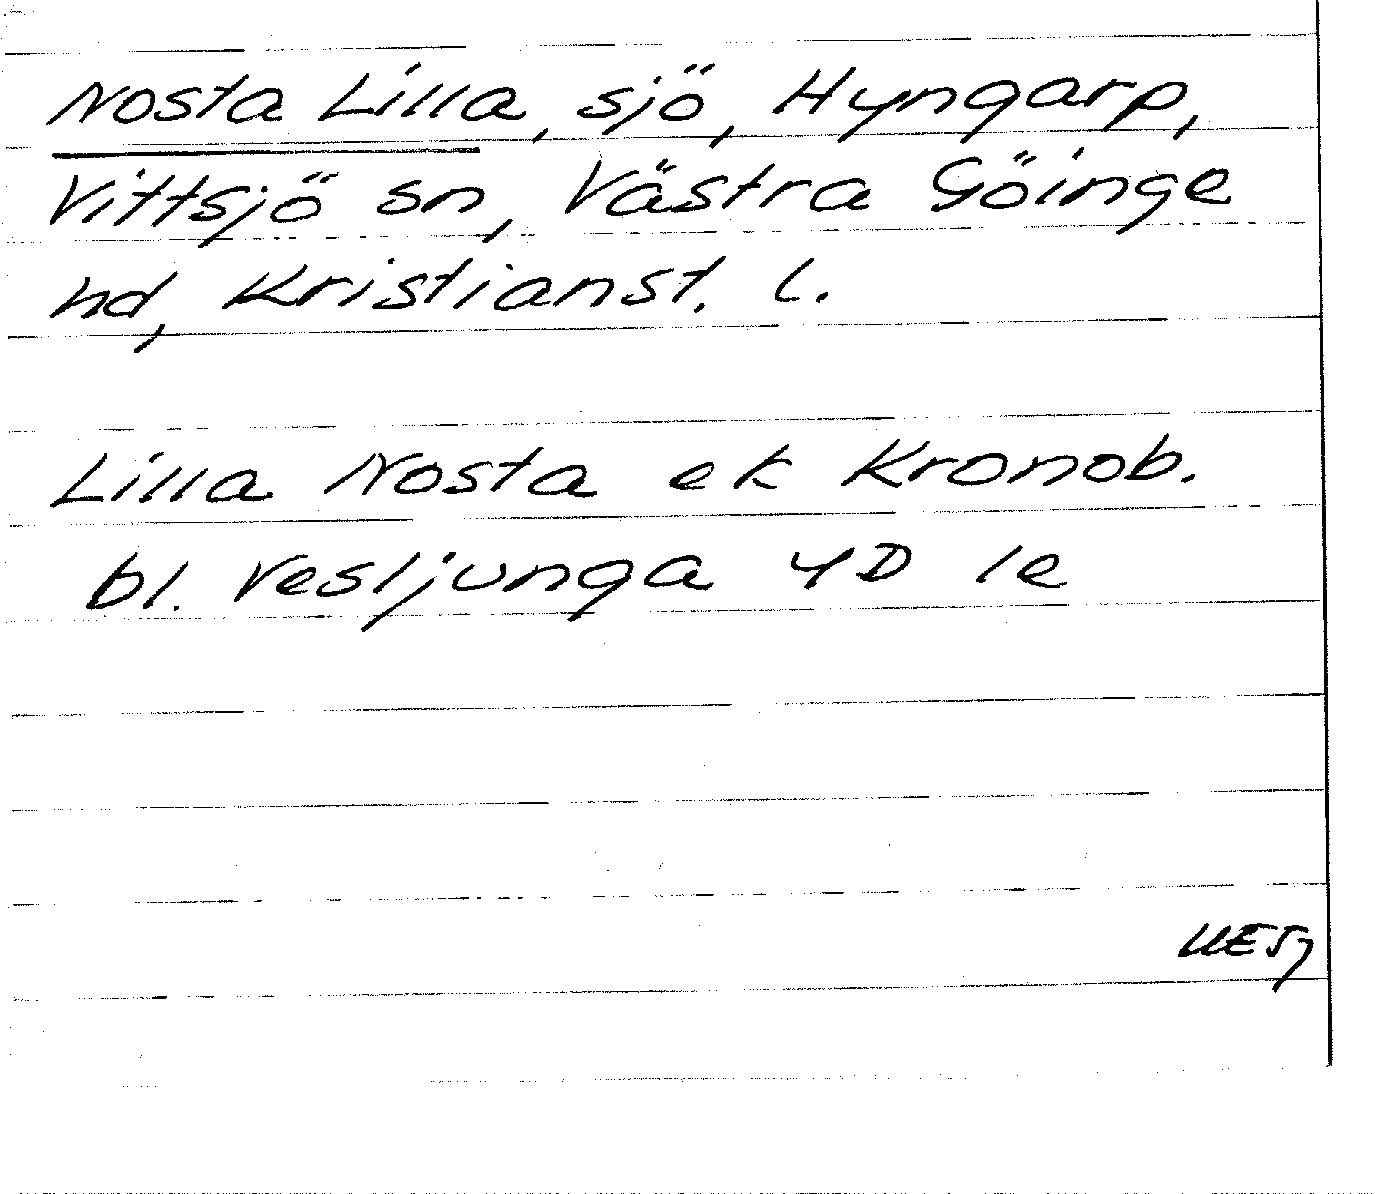 Nosta Lilla, sjö, Hyngarp,
Vittsjö sn, Västra Göinge
hd, Kristianst. l.
Lilla Nosta ek Kronob.
bl. Vesljunga 4D 1e